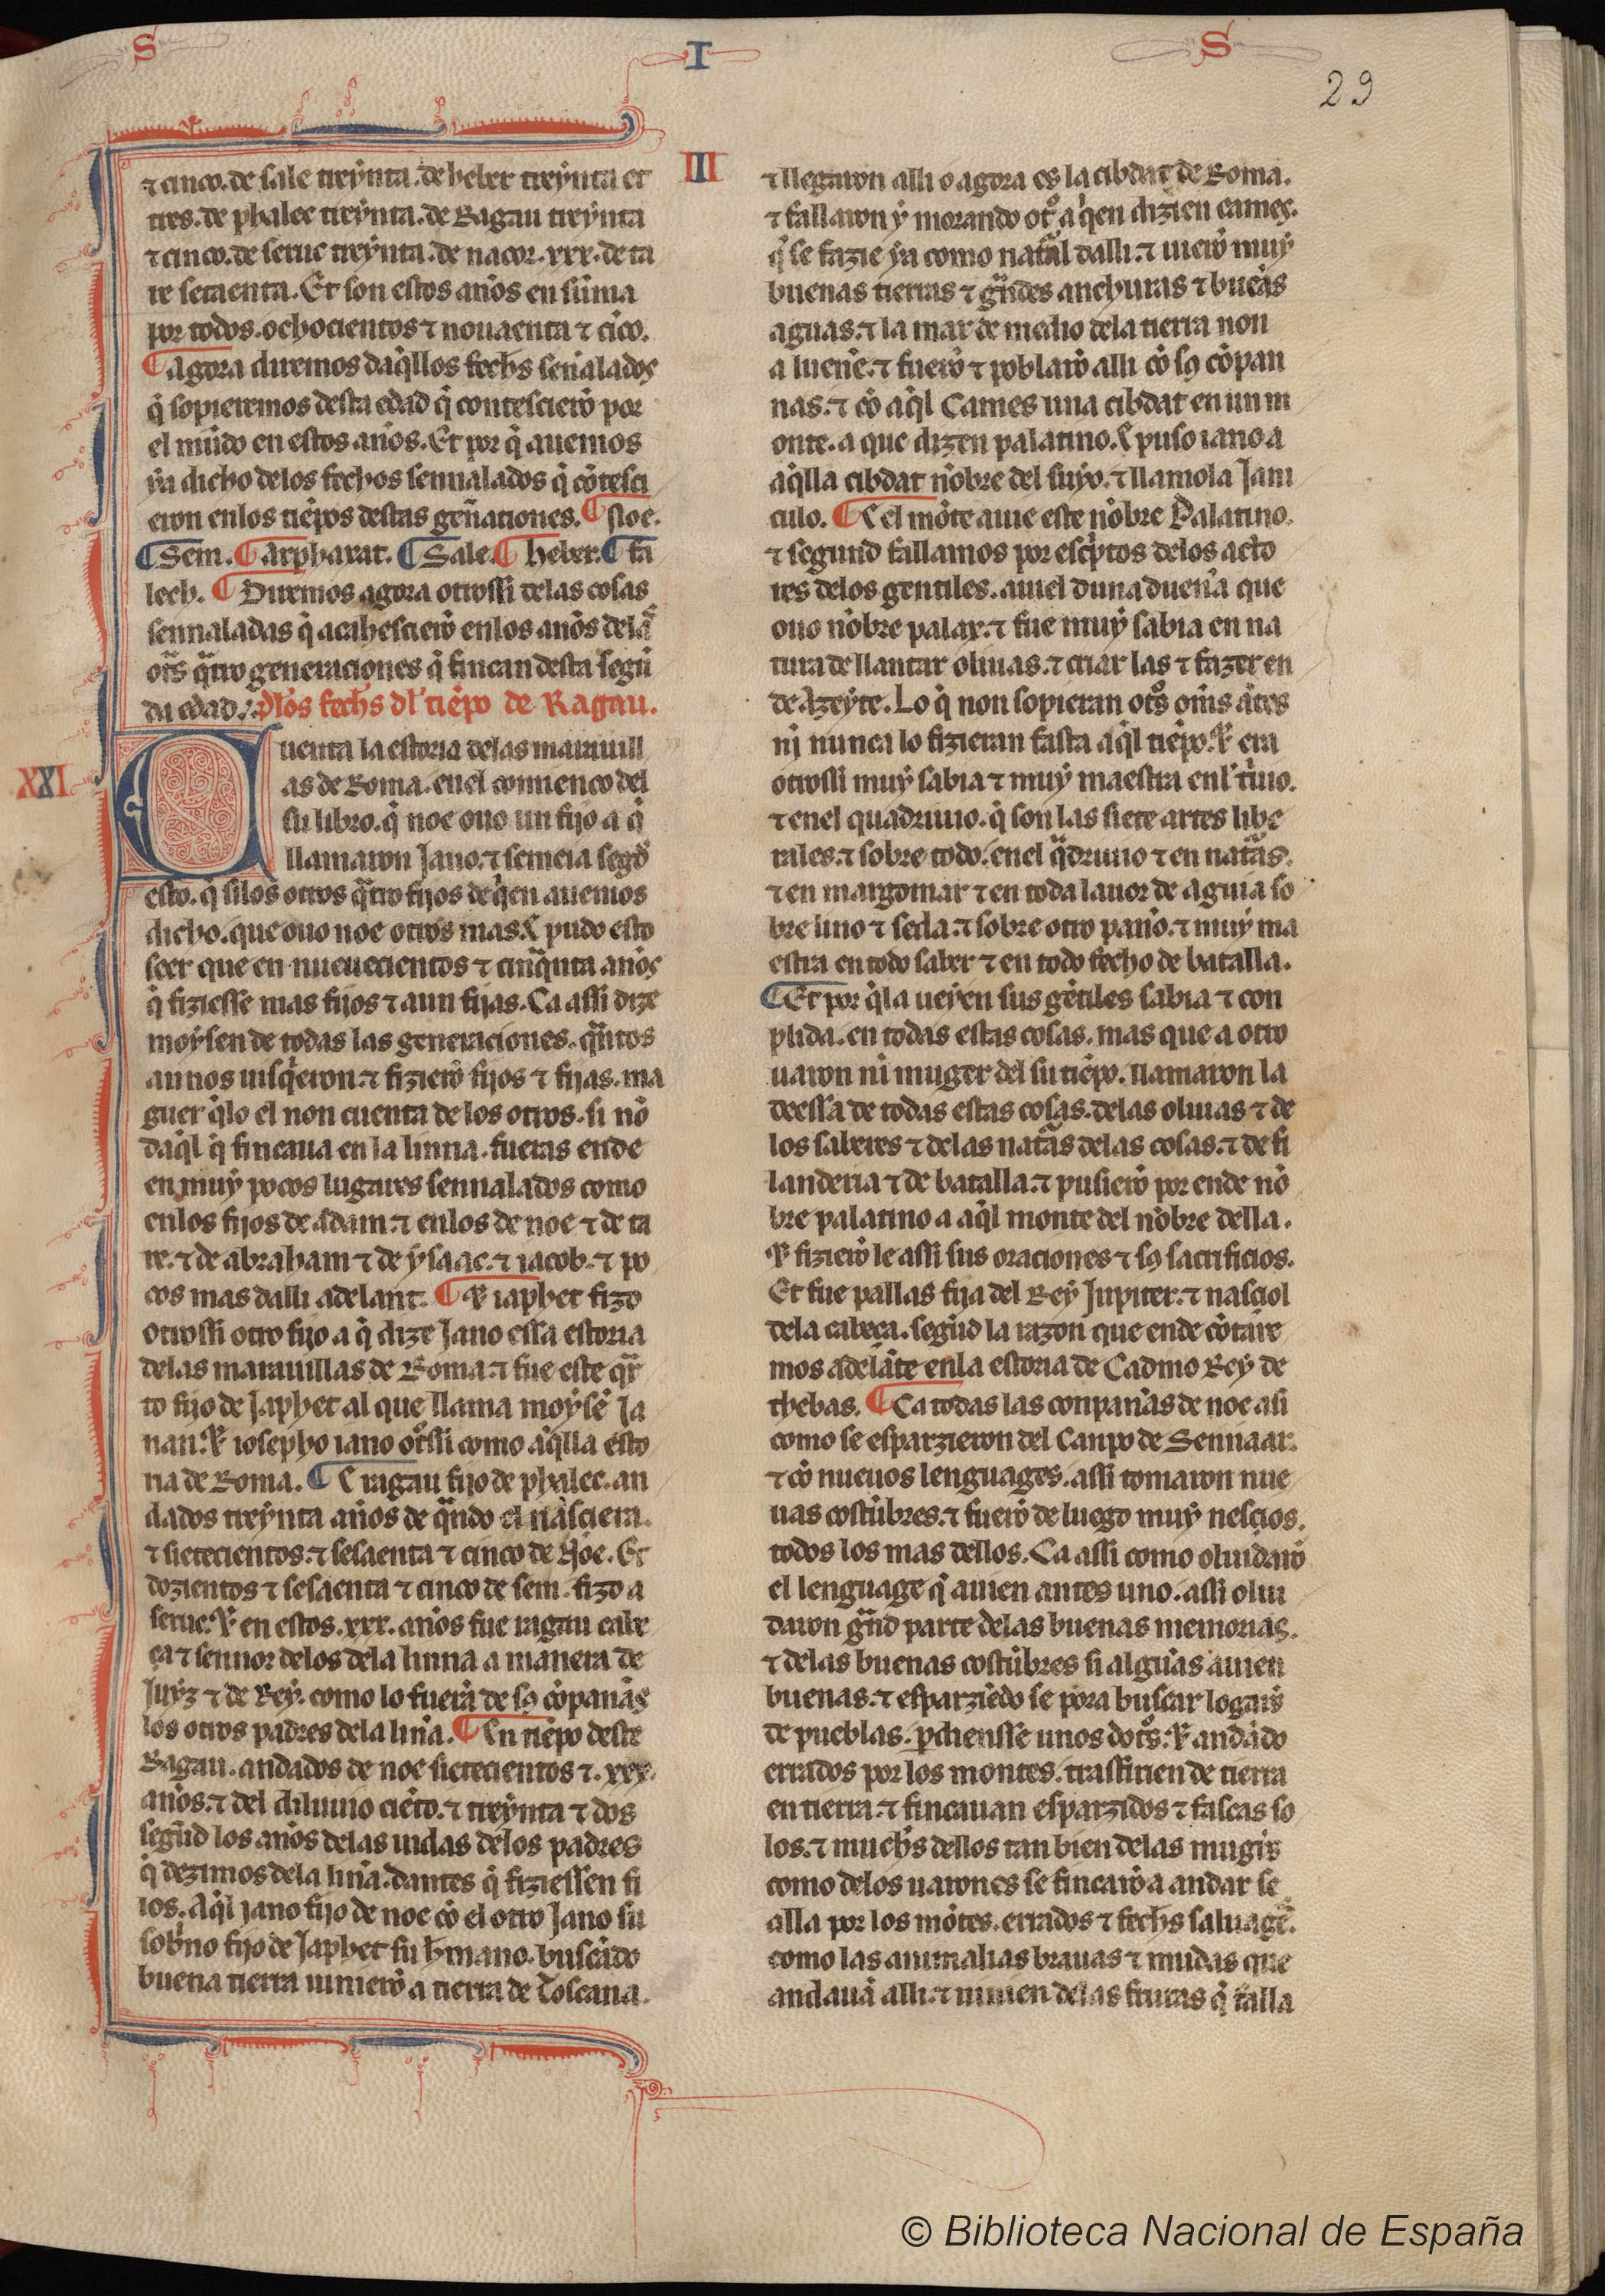 S I S
29
⁊ cinco. de sale treynta. de heber treynta et
tres. de phalec treynta. de Ragau treynta
⁊ cinco. de seruc treynta. de nacor. xxx. de ta
re setaenta. Et son estos años en sũma
por todos. ochocientos ⁊ nouaenta ⁊ cĩco.
¶ agora diremos daq̃llos fechs señalados
q̃ sopieremos desta edad q̃ contescierõ por
el mũdo en estos años. Et por q̃ auemos
ya dicho delos fechos sennalados q̃ cõtesci
eron enlos tiẽpos destas geñationes. ¶ Noe.
¶ Sem. ¶ Arphaxat. ¶ Sale. ¶ heber. ¶ fa
lech. ¶ Diremos agora otrossi delas cosas
sennaladas q̃ acahescierõ enlos años delas
otͣs qͣtro generaciones q̃ fincan desta segũ
da edad. Dlos fechs dl' tiẽpo de Ragau.
XXI
Cuenta la estoria delas marauill
as de Roma. enel comienço del
su libro. q̃ noe ouo un fijo a q̃
llamaron Jano. ⁊ semeia segõ
esto. q̃ silos otros qͣtro fijos de q̃en auemos
dicho. que ouo noe otros mas. E pudo esto
seer que en nueuecientos ⁊ cinqͣnta años
q̃ fiziesse mas fijos ⁊ aun fijas. Ca assi dize
moysen de todas las generaciones. qͣntos
annos uisq̃eron. ⁊ fizierõ fijos ⁊ fijas. ma
guer q̃lo el non cuenta de los otros. si nõ
daq̃l q̃ fincaua en la linna. fueras ende
en muy pocos lugares sennalados como
enlos fijos de adam. ⁊ enlos de noe ⁊ de ta
re. ⁊ de abraham ⁊ de ysaac. ⁊ iacob. ⁊ po
cos mas dalli adelant. ¶ ⁊ iaphet fizo
otrossi otro fijo a q̃ dize Jano essa estoria
delas marauillas de Roma. ⁊ fue este qͣr
to fijo de Japhet al que llama moysẽ Ja
nan. ⁊ iosepho iano otͦssi como aq̃lla esto
ria de Roma. ¶ E ragau fijo de phalec. an
dados treynta años de qͣndo el nasciera.
⁊ sietecientos. ⁊ sesaenta ⁊ cinco de Noe. Et
dozientos ⁊ sesaenta ⁊ cinco de sem. fizo a
seruc. ⁊ en estos. xxx. años fue ragau cabe
ça ⁊ sennor delos dela linna a manera de
Juyz ⁊ de Rey. como lo fuerã de sꝯ cõpañas
los otros padres dela liña. ¶ En tiẽpo deste
Ragau. andados de noe sietecientos ⁊. xxx.
años. ⁊ del diluuio ciẽto. ⁊ treynta ⁊ dos
segũd los años delas uidas delos padres
q̃ dezimos dela liña. dantes q̃ fiziessen fi
ios. Aq̃l iano fijo de noe cõ el otro Jano su
sobͥno fijo de Japhet su h̃mano. buscãdo
buena tierra uinierõ a tierra de Toscana.
III
⁊ llegaron alli o agora es la cibdat de Roma.
⁊ fallaron y morando otͦ a q̃en dizien cames.
q̃ se fazie ya como natͣal dalli. ⁊ uierõ muy
buenas tierras ⁊ gͣndes anchuras ⁊ bueãs
aguas. ⁊ la mar de medio dela tierra non
a lueñe. ⁊ fuerõ ⁊ poblarõ alli cõ sꝯ cõpan
nas. ⁊ cõ aq̃l Cames una cibdat en un m
onte. a que dizen palatino. E puso iano a
aq̃lla cibdat nõbre del suyo. ⁊ llamola Jani
culo. ¶ E el mõte auie este nõbre Palatino.
⁊ segund fallamos por escͥptos delos acto
res delos gentiles. auiel duna dueña que
ouo nõbre palax. ⁊ fue muy sabia en na
tura de llantar oliuas. ⁊ criar las ⁊ fazer en
de Azeyte. Lo q̃ non sopieran otͦs oms ãtes
ni nunca lo fizieran fasta aq̃l tiẽpo. ⁊ era
otrossi muy sabia ⁊ muy maestra enl' tͥuio.
⁊ enel quadruuio. q̃ son las siete artes libe
rales. ⁊ sobre todo. enel qͣdruuio ⁊ en natͣas.
⁊ en margomar ⁊ en toda lauor de aguia so
bre lino ⁊ seda. ⁊ sobre otro paño. ⁊ muy ma
estra en todo saber ⁊ en todo fecho de batalla.
¶ Et por q̃la ueyen sus gẽtiles sabia ⁊ con
plida. en todas estas cosas. mas que a otro
uaron ni muger del su tiẽpo. llamaron la
deessa de todas estas cosas. delas oliuas ⁊ de
los saberes ⁊ delas natͣas delas cosas. ⁊ de fi
landeria ⁊ de batalla. ⁊ pusierõ por ende nõ
bre palatino a aq̃l monte del nõbre della.
⁊ fizierõ le assi sus oraciones ⁊ sꝯ sacrificios.
Et fue pallas fija del Rey Jupiter. ⁊ nasciol
dela cabeça. segũd la razon que ende cõtare
mos adelãte enla estoria de Cadmo Rey de
thebas. ¶ Ca todas las conpañas de noe asi
como se esparzieron del Canpo de Sennaar.
⁊ cõ nueuos lenguages. assi tomaron nue
uas costũbres. ⁊ fuerõ de luego muy nescios.
todos los mas dellos. Ca assi como oluidarõ
el lenguage q̃ auien antes uno. assi olui
daron gͣnd parte delas buenas memorias.
⁊ delas buenas costũbres si algũas auien
buenas. ⁊ esparziẽdo se pora buscar logars
de pueblas. ꝑdiensse unos dotͦs. ⁊ andãdo
errados por los montes. trassirien de tierra
en tierra. ⁊ fincauan esparzidos ⁊ fascas so
los. ⁊ muchs dellos tan bien delas mugiͤs
como delos uarones se fincarõ a andar se
alla por los mõtes. errados ⁊ fechs saluages.
como las animalias brauas ⁊ mudas que
andauã alli. ⁊ uiuien delas frutas q̃ falla
© Biblioteca Nacional de España